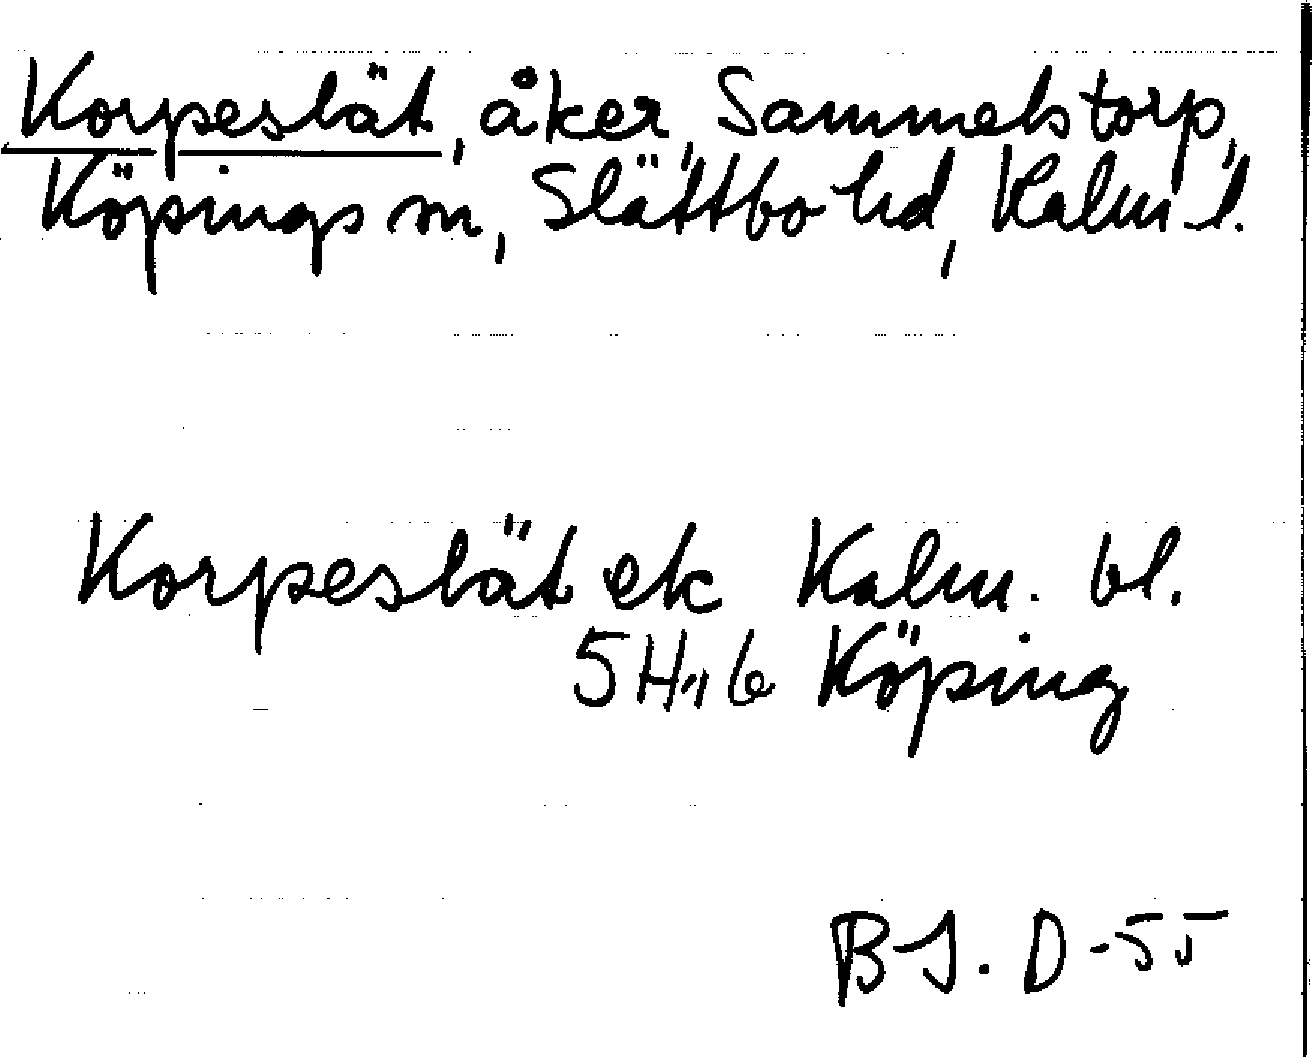 Korpeslät, åker, Sammelstorp,
Köpings sn, Slättbo hd, Kalm. l.
Korpeslät ek Kalm. bl.
5H,,6 Köping
BJ. D-55